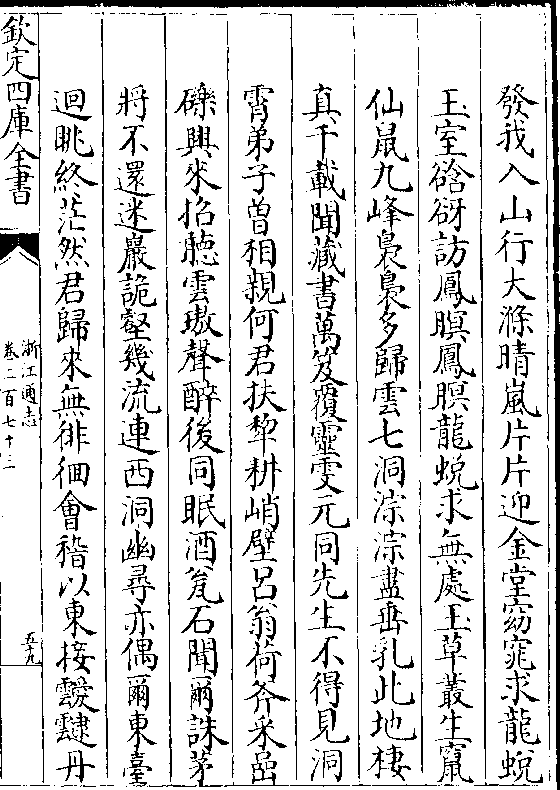 發我入山行大滌晴嵐片片迎金堂窈窕求龍蛻
玉室谽谺訪鳳𦝫鳳𦝫龍蛻求無處玉草叢生竄
仙鼠九峰裊裊多歸雲七洞淙淙盡垂乳此地棲
真千載聞藏書萬笈覆靈雯元同先生不得見洞
霄弟子曽相親何君扶犂耕峭壁呂翁荷斧采嵒
礫興來招聽雲璈聲醉後同眠酒瓮石聞爾誅茅
將不還迷巖詭壑幾流連西洞幽尋亦偶爾東臺
迴眺終茫然君歸來無徘徊會稽以東接靉靆丹
欽定四庫全書
浙江通志
卷二百七十三
五十九